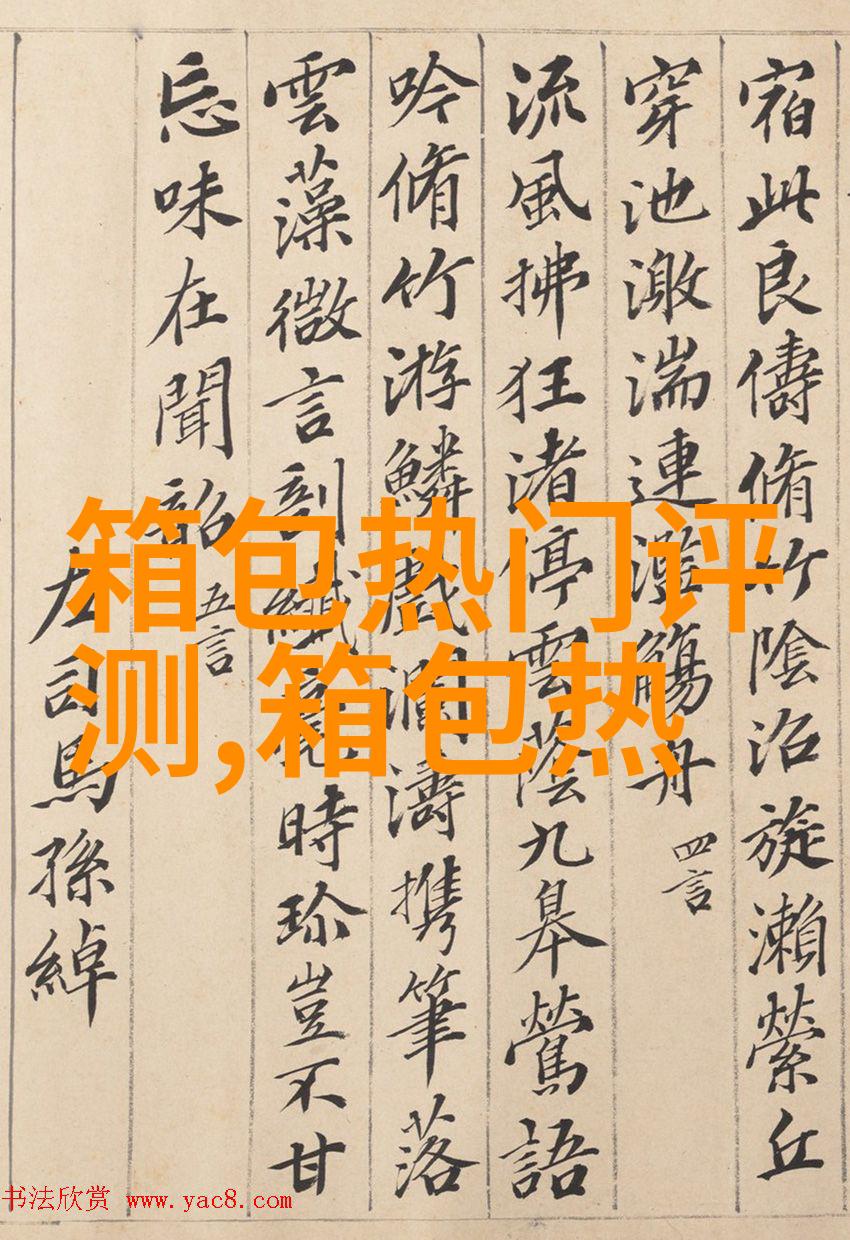 宿此良儔脩竹陰沼旋瀨縈丘
穿池激湍連濫觴舟
四言
流風拂狂渚停雲蔭九皋鶯語
吟脩竹游鱗戲瀾濤攜筆落
雲藻微言剖纖毫時珍豈不甘
忘味在聞韶
五言
左司馬孫綽
箱包热门评
测,箱包热
书法欣赏 www.yac8.com